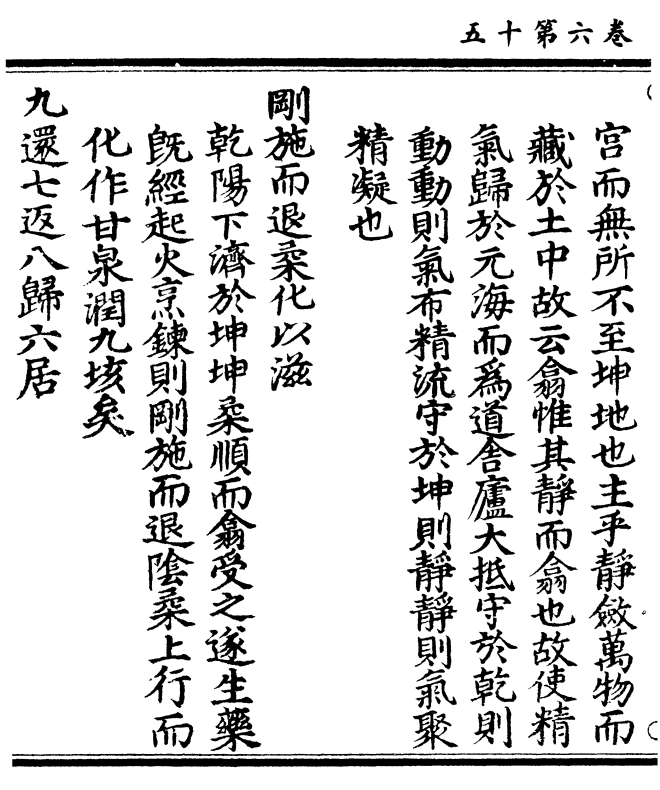 卷六第十五
宫而無所不至坤地也主乎靜斂萬物而
藏於土中故云翕惟其靜而翕也故使精
氣歸於元海而爲道舍廬大抵守於乾則
動動則氣布精流守於坤則靜靜則氣聚
精凝也
剛施而退柔化以滋
乾陽下濟於坤坤柔順而翕受之遂生藥
旣經起火烹鍊則剛施而退陰柔上行而
化作甘泉潤九垓矣
九還七返八歸六居